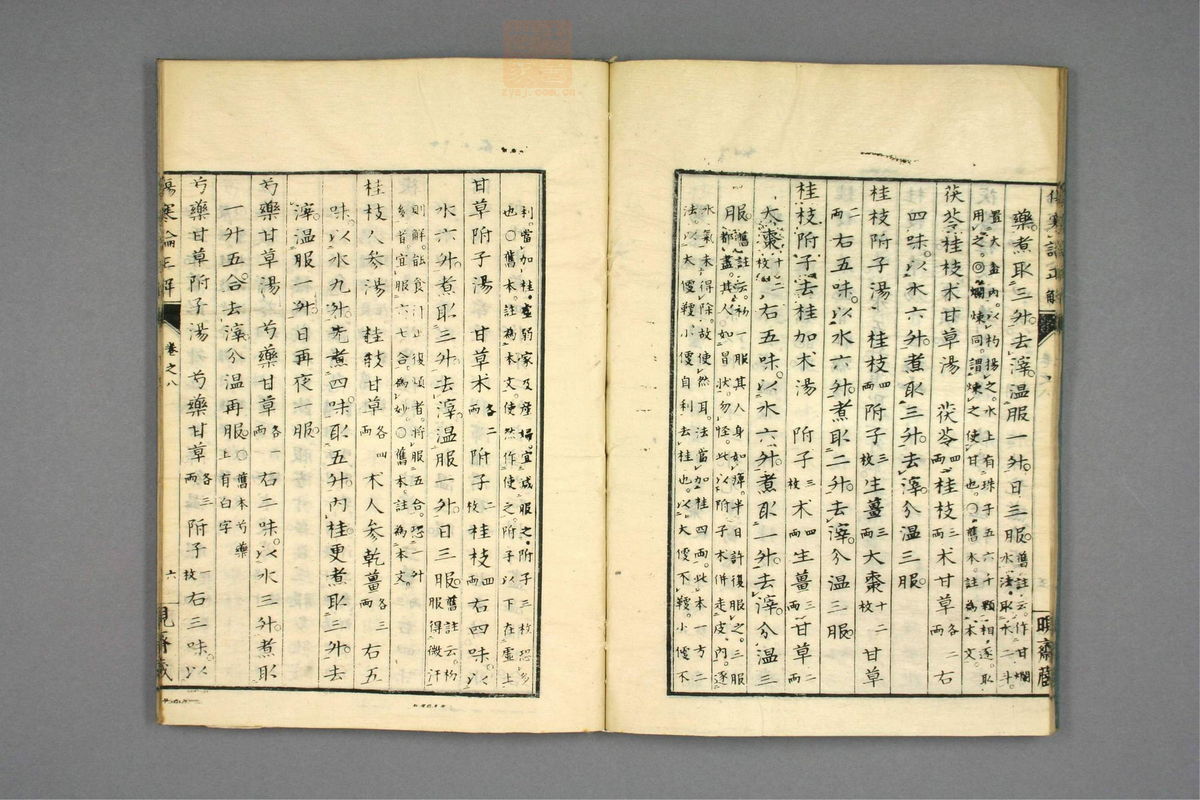 藥煮取三升去滓温服一升日三服舊註云作甘爛水法取水二斗
置大盆内以杓揚之水上有珠子五六千顆相逐取用之◎爛煉同謂煉之使甘也○舊本註為本文
茯苓桂枝朮甘草湯 茯苓四兩桂枝三兩朮甘草各二兩右
四味以水六升煮取三升去滓分温三服
桂枝附子湯 桂枝四兩附子三枚生薑三兩大棗十二枚甘草
二兩右五味以水六升煮取二升去滓分温三服
桂枝附子去桂加朮湯 附子三枚朮四兩生薑三兩甘草二兩
大棗十二枚右五味以水六升煮取一升去滓分温三
服舊註云初一服其人身如痺半日許復服之三服都盡其人如冒状勿怪此以附子朮併走皮内逐
水氣未得除故使然耳法當加桂四兩此本一方二法以大便鞕小便自利去桂也以大便不鞕小便不
利當加桂虚弱家及産婦宜減服之附子三枚恐多也○舊本註為本文使然作使之附子以下在虚上
甘草附子湯 甘草朮各二兩附子二枚桂枝四兩右四味以
水六升煮取三升去滓温服一升日三服舊註云初服得微汗
則解能食汗止復煩者将服五合恐一升多者宜服六七合為妙○舊本註為本文
桂枝人参湯 桂枝甘草各四兩朮人参乾薑各三兩右五
味以水九升先煮四味取五升内桂更煮取三升去
滓温服一升日再夜一服
芍藥甘草湯 芍藥甘草各四兩右二味以水三升煮取
一升五合去滓分温再服○舊本芍藥上有白字
芍藥甘草附子湯 芍藥甘草各三兩附子一枚右三味以
傷寒論正解
卷之八
六